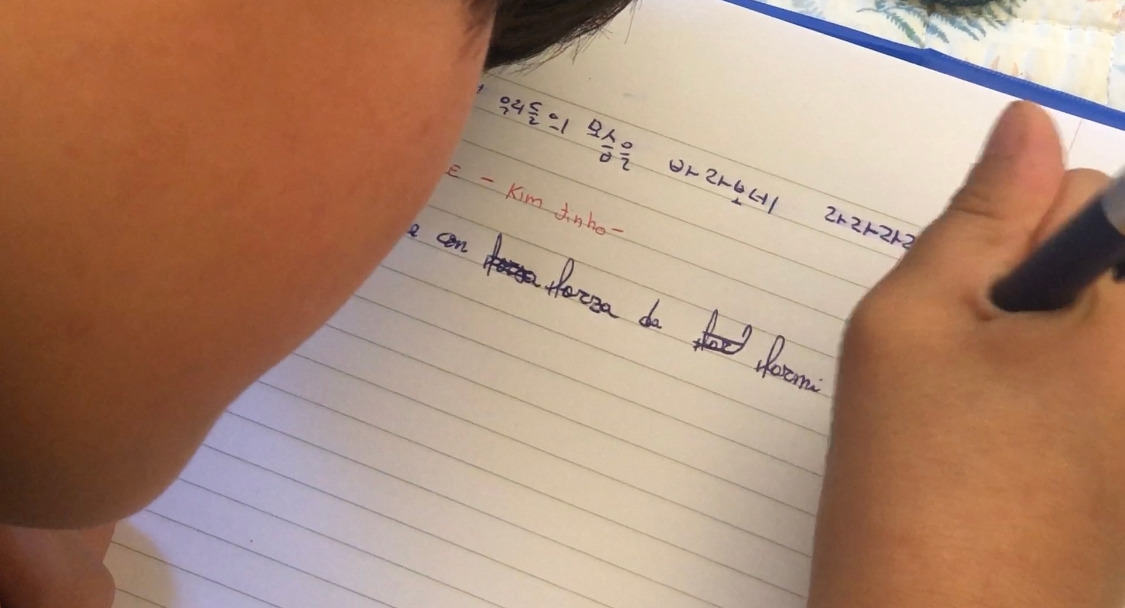 우리들의 모습을 바라보네 라라라라
- Kim Jinho -
e con forza da formi